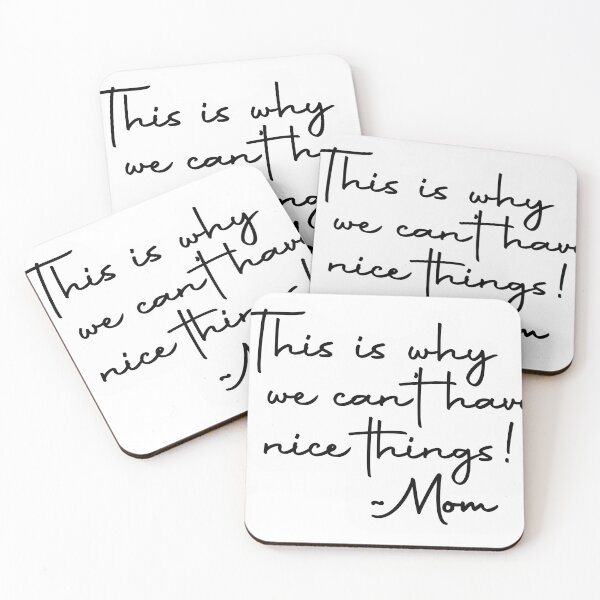 This is why
we can't h
ng
This is why
we can't have
nice things!
om
This is why
we can't have
nice things!
~M
This is why
we can't have
nice things!
~Mom